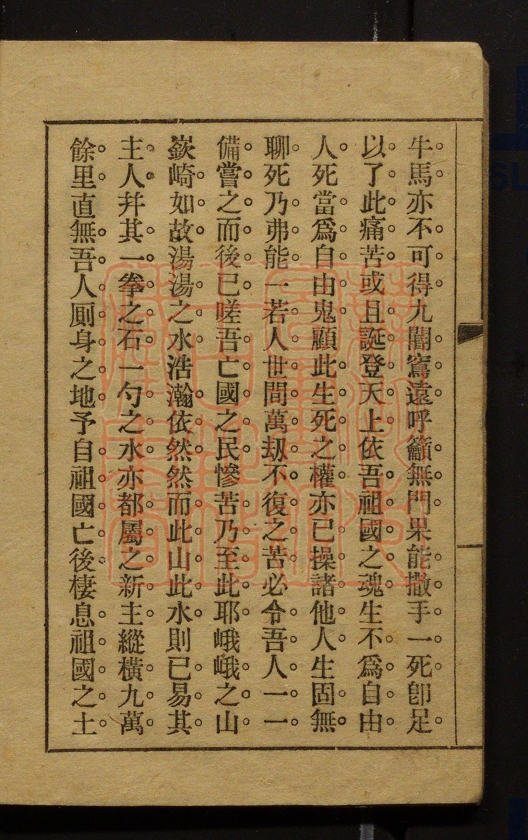 牛馬亦不可得九閽窵遠呼籲無門果能撒手一死卽足
以了此痛苦或且誕登天上依吾祖國之魂生不爲自由
人死當爲自由鬼顧此生死之權亦已操諸他人生固無
聊死乃弗能一若人世間萬刼不復之苦必令吾人一一
備嘗之而後已嗟吾亡國之民慘苦乃至此耶峨峨之山
嶔崎如故湯湯之水浩瀚依然然而此山此水則已易其
主人幷其一拳之石一勺之水亦都屬之新主縱橫九萬
餘里直無吾人厠身之地予自祖國亡後棲息祖國之土